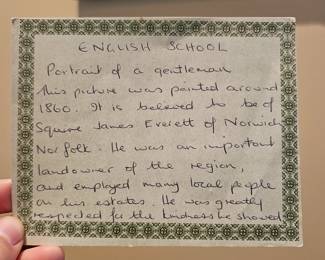 ENGLISH SCHOOL
Portrait of a gentleman
This picture was painted around
1860. It is believed to be of
Squire James Everett of Norwich
Norfolk. He was an important
landowner of the region,
and employed many local people
on his estates. He was greatly
respected for the kindness he showed